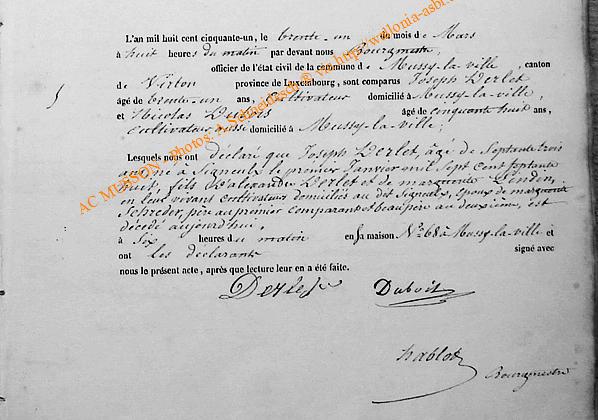 L'an mil huit cent cinquante-un, le trente-un du mois de Mars
à huit heures du matin par devant nous Bourgmestre,
officier de l'état civil de la commune de Mussy-la-ville, canton
de Virton province de Luxembourg, sont comparus Joseph Derlet
âgé de trente-un ans, Cultivateur domicilié à Mussy-la-ville,
et Nicolas Dubois âgé de cinquante huit ans,
cultivateur aussi domicilié à Mussy-la-ville;
Lesquels nous ont déclaré que Joseph Derlet, âgé de Septante trois
ans né à Signeulx le premier Janvier mil Sept Cent Septante
huit, fils d'alexandre Derlet et de marguerite
en leur vivant cultivateurs domiciliés au dit Signeulx, époux de marguerite
Schreder, père au premier comparant et beaupère au deuxième, est
décédé aujourd'hui,
à Six heures du matin en sa maison N° 68 à Mussy-la-ville et
ont les déclarants signé avec
nous le présent acte, après que lecture leur en a été faite.
Derlet Dubois
Bourgmestre
AC MUSSON - Photos: A. Schneidesch © via http://wallonia-asbl